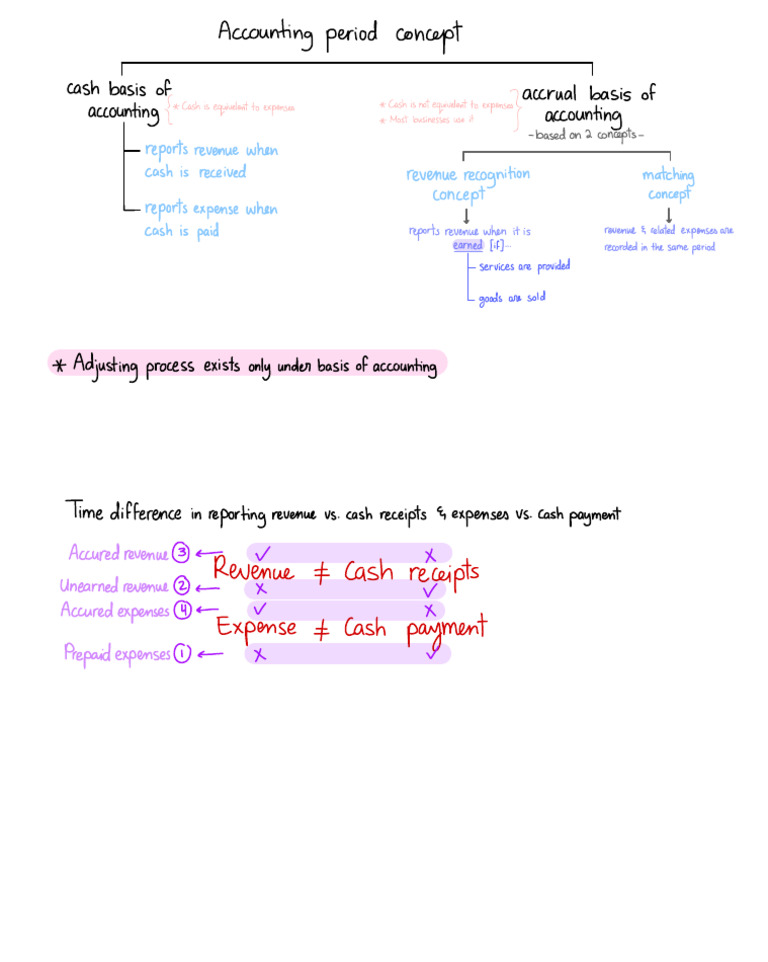 Accounting period concept
cash basis of
accounting
* Cash is equivalent to expenses
* Cash is not equivalent to expenses
* Most businesses use it
accrual basis of
accounting
- based on 2 concepts -
reports revenue when
cash is received
reports expense when
cash is paid
revenue recognition
concept
reports revenue when it is
earned [if]...
services are provided
goods are sold
matching
concept
revenue & related expenses are
recorded in the same period
* Adjusting process exists only under basis of accounting
Time difference in reporting revenue vs. cash receipts & expenses vs. cash payment
Accured revenue 3 ← ✓ x
Revenue ≠ Cash receipts
Unearned revenue 2 ← x ✓
Accured expenses 4 ← ✓ x
Expense ≠ Cash payment
Prepaid expenses 1 ← x ✓